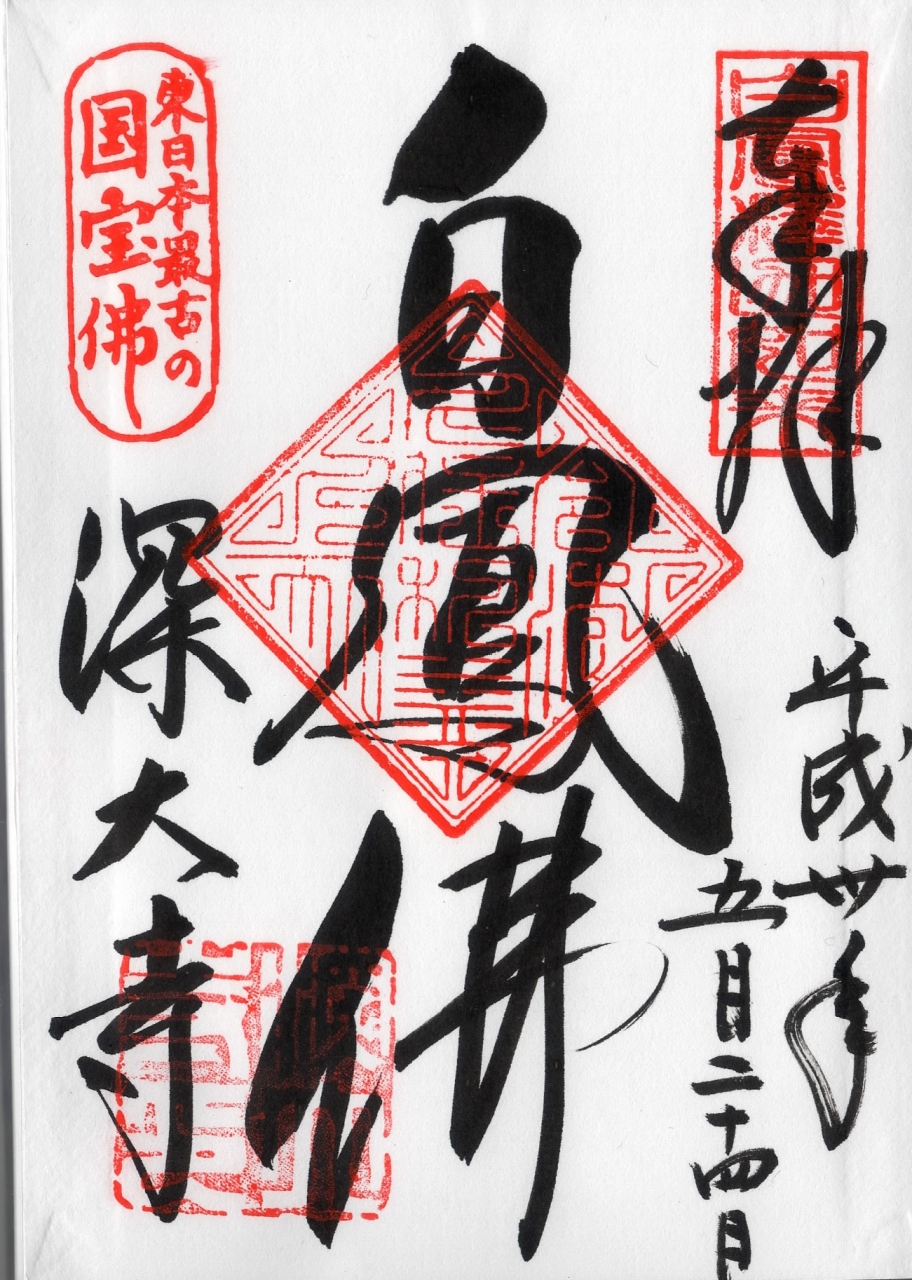 奉拝
平成卅年
五月二十四日
白鳳佛
深大寺
東日本最古の
国宝佛